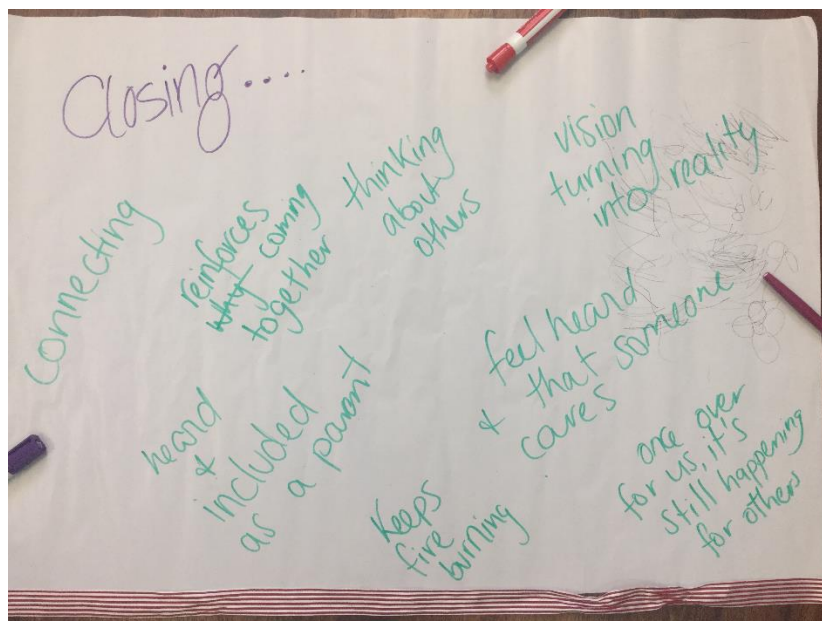 Closing....
connecting
reinforces
why coming
together
thinking
about
others
vision
turning
into reality
heard
&
included
as a parent
feel heard
& that someone
cares
Keeps
fire
burning
once over
for us, it's
still happening
for others